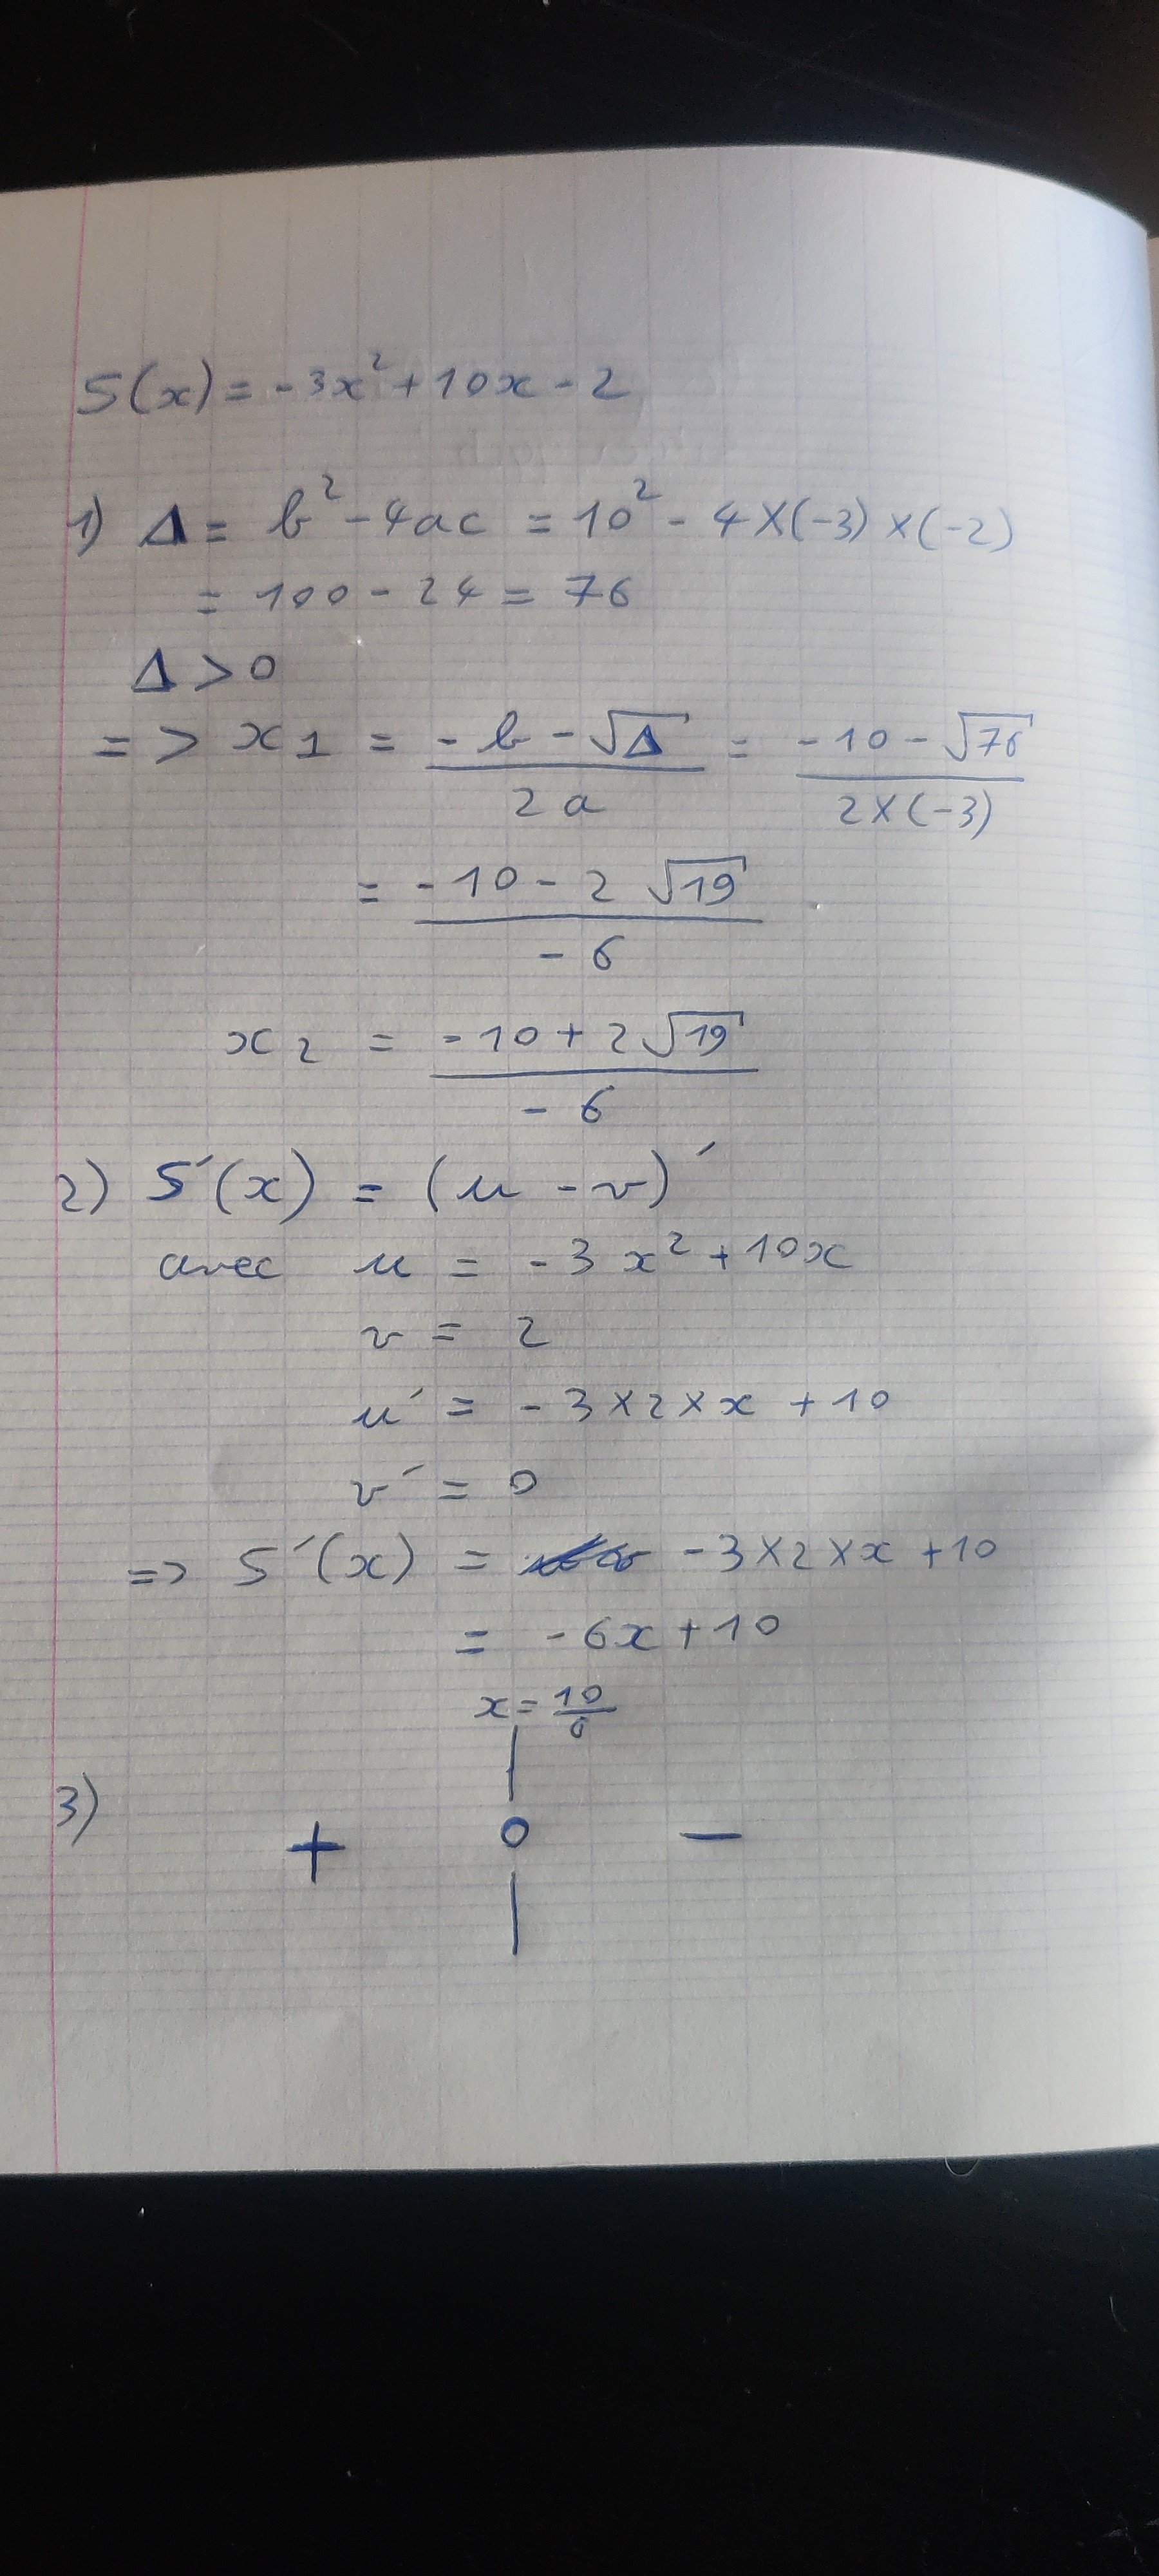 S(x) = -3x² + 10x - 2
1) Δ = b² - 4ac = 10² - 4×(-3)×(-2)
= 100 - 24 = 76
Δ > 0
=> x1 = (-b - √Δ)/(2a) = (-10 - √76)/(2×(-3))
= (-10 - 2√19)/(-6)
x2 = (-10 + 2√19)/(-6)
2) S'(x) = (u - v)'
avec u = -3x² + 10x
v = 2
u' = -3×2×x + 10
v' = 0
=> S'(x) = -3×2×x + 10
= -6x + 10
x = 10/6
3) + 0 -